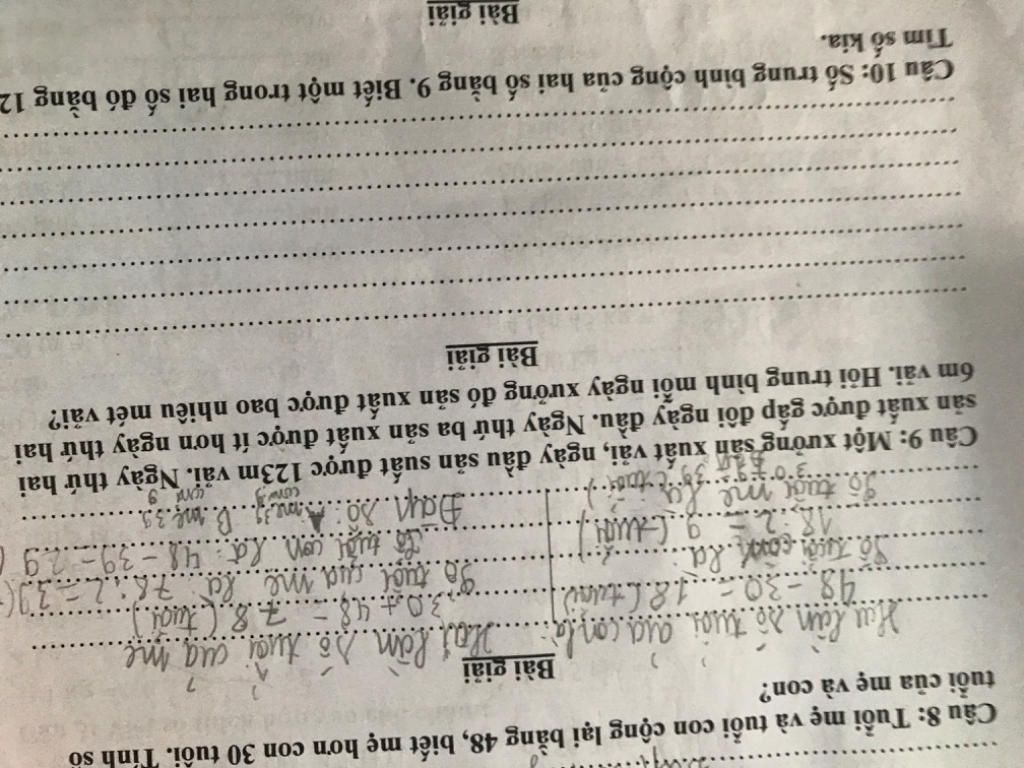 Câu 8: Tuổi mẹ và tuổi con cộng lại bằng 48, biết mẹ hơn con 30 tuổi. Tính số
tuổi của mẹ và con?
Bài giải
Hai lần số tuổi của con là: Hai lần số tuổi của mẹ
48 - 30 = 18 (tuổi) 30 + 48 = 78 (tuổi)
Số tuổi con là: Số tuổi của mẹ là: 78 : 2 = 39 (
18 : 2 = 9 (tuổi) Số tuổi con là: 48 - 39 = 9
Số tuổi mẹ là: Đáp số: A. mẹ 39 B. mẹ 39
30 + 9 = 39 (tuổi) con 9 con 9
Câu 9: Một xưởng sản xuất vải, ngày đầu sản suất được 123m vải. Ngày thứ hai
sản xuất được gấp đôi ngày đầu. Ngày thứ ba sản xuất được ít hơn ngày thứ hai
6m vải. Hỏi trung bình mỗi ngày xưởng đó sản xuất được bao nhiêu mét vải?
Bài giải
Câu 10: Số trung bình cộng của hai số bằng 9. Biết một trong hai số đó bằng 12
Tìm số kia.
Bài giải